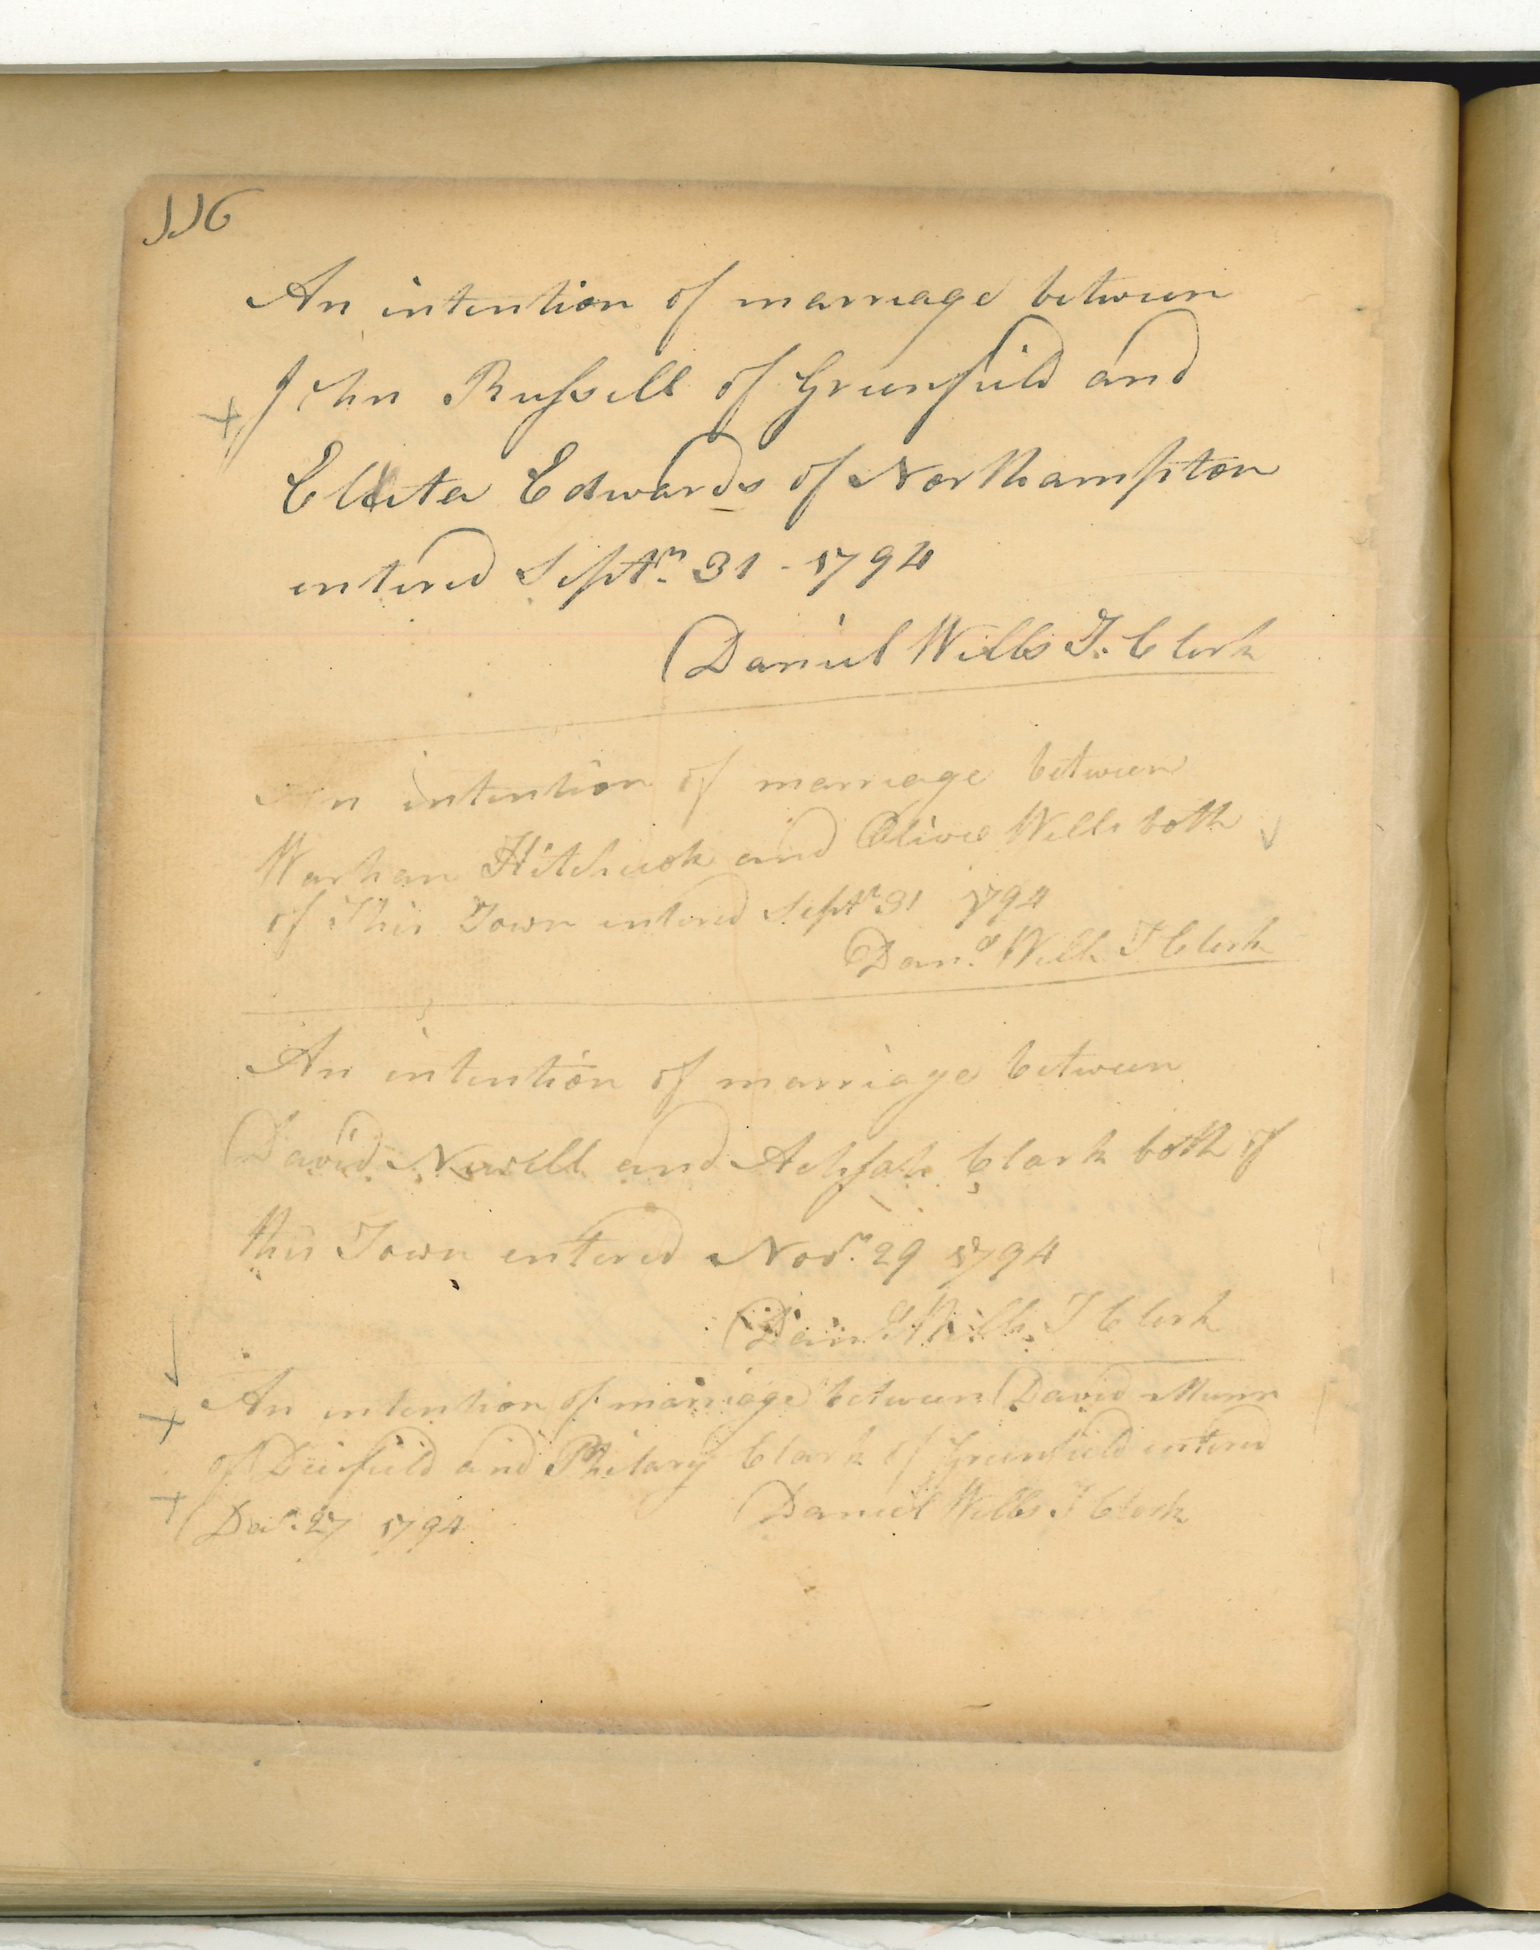 116
An intention of marriage between
John Russell of Greenfield and
Electa Edwards of Northampton
entered Septr. 31 - 1794
Daniel Wells T. Clerk
An intention of marriage between
Warham Hitchcock and Olive Wells both
of This Town entered Septr 31 1794
Danl Wells T Clerk
An intention of marriage between
David Newell and Achsah Clark both of
this Town entered Novr. 29 1794
Danl Wells T Clerk
An intention of marriage between David Munn
of Deerfield and Clark of Greenfield entered
Decr. 27 1794 Daniel Wells T Clerk